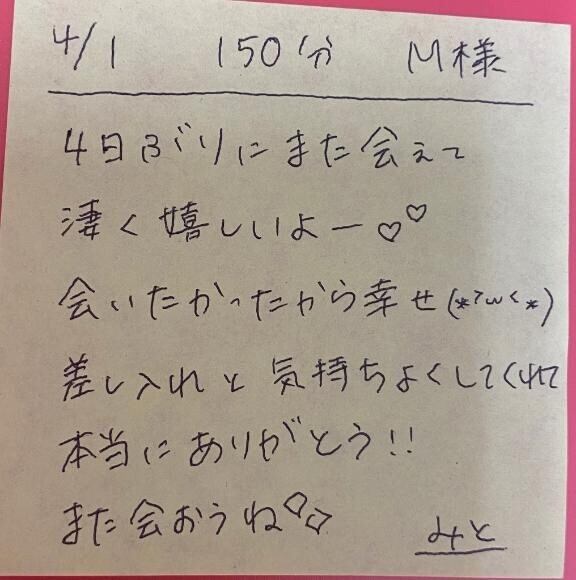 4/1 150分 M様
4日ぶりにまた会えて
凄く嬉しいよー♡♡
会いたかったから幸せ(*>ω<*)
差し入れと気持ちよくしてくれて
本当にありがとう!!
また会おうね♡♡
みと